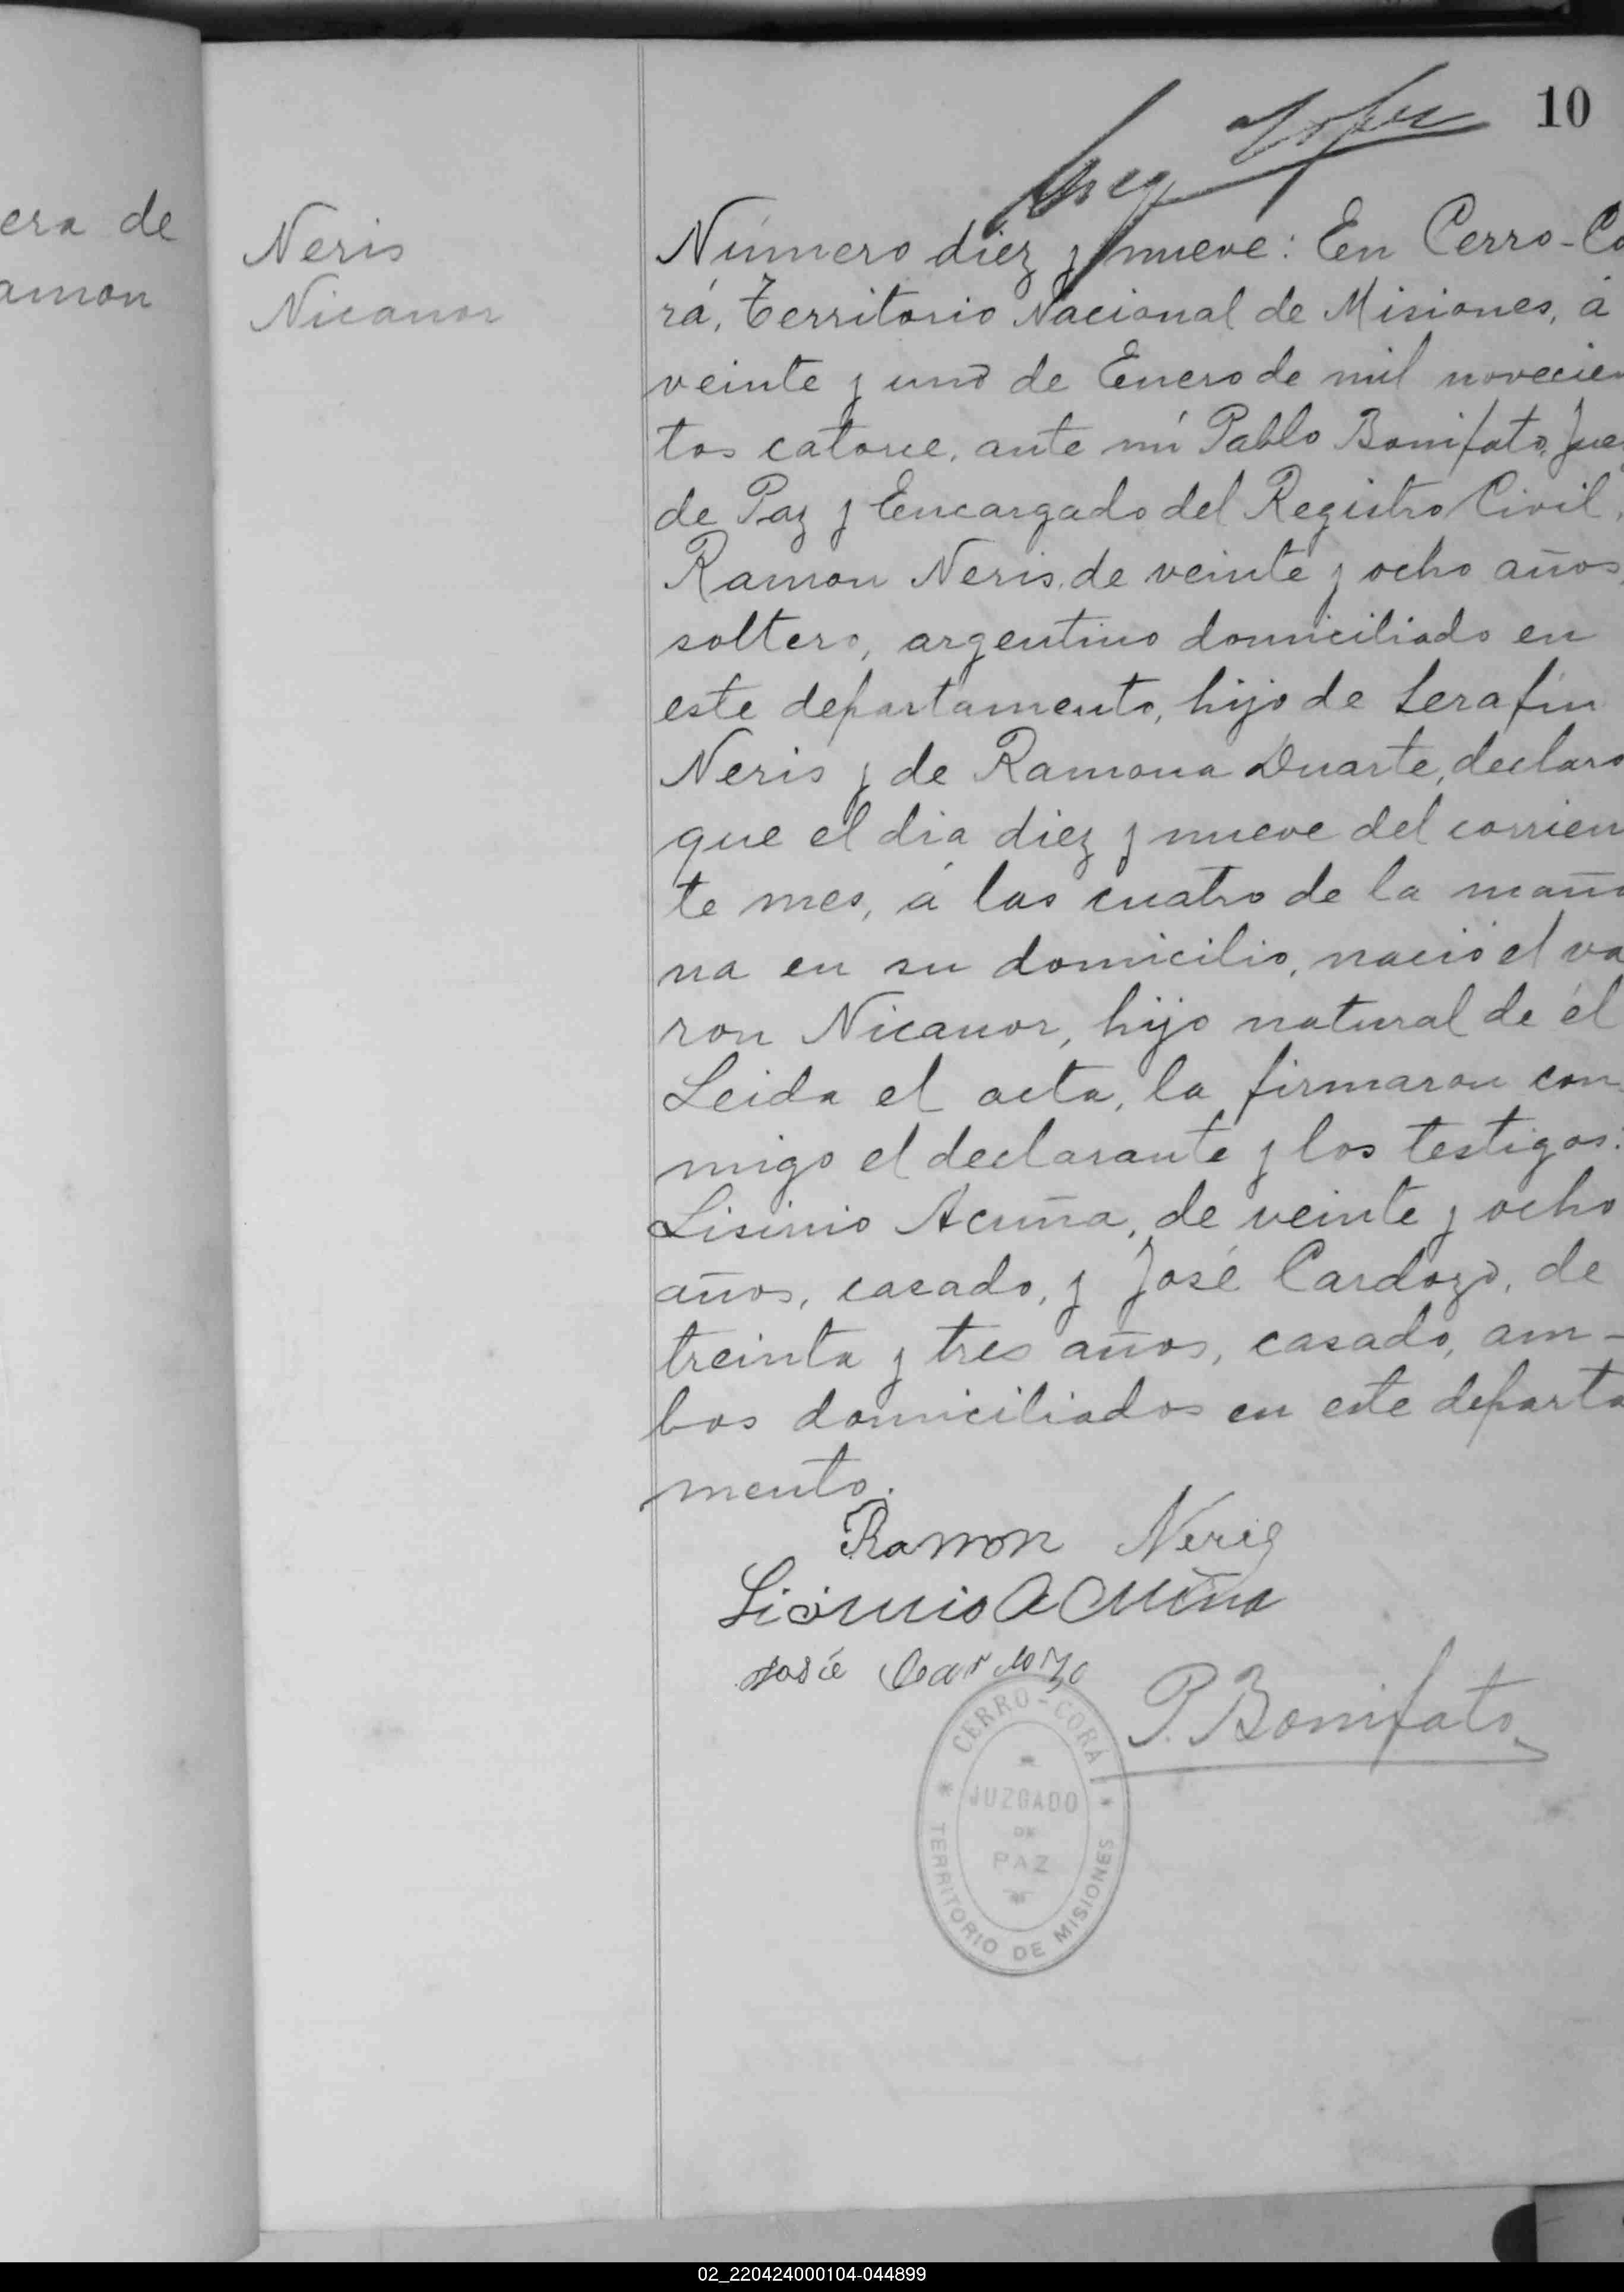 10
era de
amon
Neris
Nicanor
Número diez y nueve: En Cerro-Co
rá, Territorio Nacional de Misiones, á
veinte y uno de Enero de mil novecien
tos catorce, ante mí Pablo Bonifato, Jue
de Paz y Encargado del Registro Civil,
Ramon Neris, de veinte y ocho años
soltero, argentino domiciliado en
este departamento, hijo de Serafin
Neris y de Ramona Duarte, declaro
que el dia diez y nueve del corrien
te mes, á las cuatro de la maña
na en su domicilio, nació el va
ron Nicanor, hijo natural de él
Leida el acta, la firmaron con
migo el declarante y los testigos:
Lisinio Acuña, de veinte y ocho
años, casado, y José Cardozo, de
treinta y tres años, casado, am-
bos domiciliados en este departa
mento.
Ramon Neris
Lisinio Acuña
José Cardozo
P. Bonifato
CERRO-CORÁ
JUZGADO
DE
PAZ
TERRITORIO DE MISIONES
02_220424000104-044899